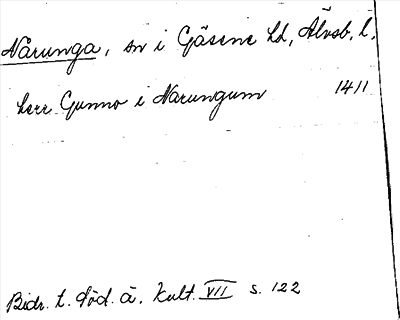 Narunga, sn i Gäsene hd, Älvsb. l.
herr Gunno i Narungum 1411
Bidr. t. Söd. ä. Kult. VII s. 122